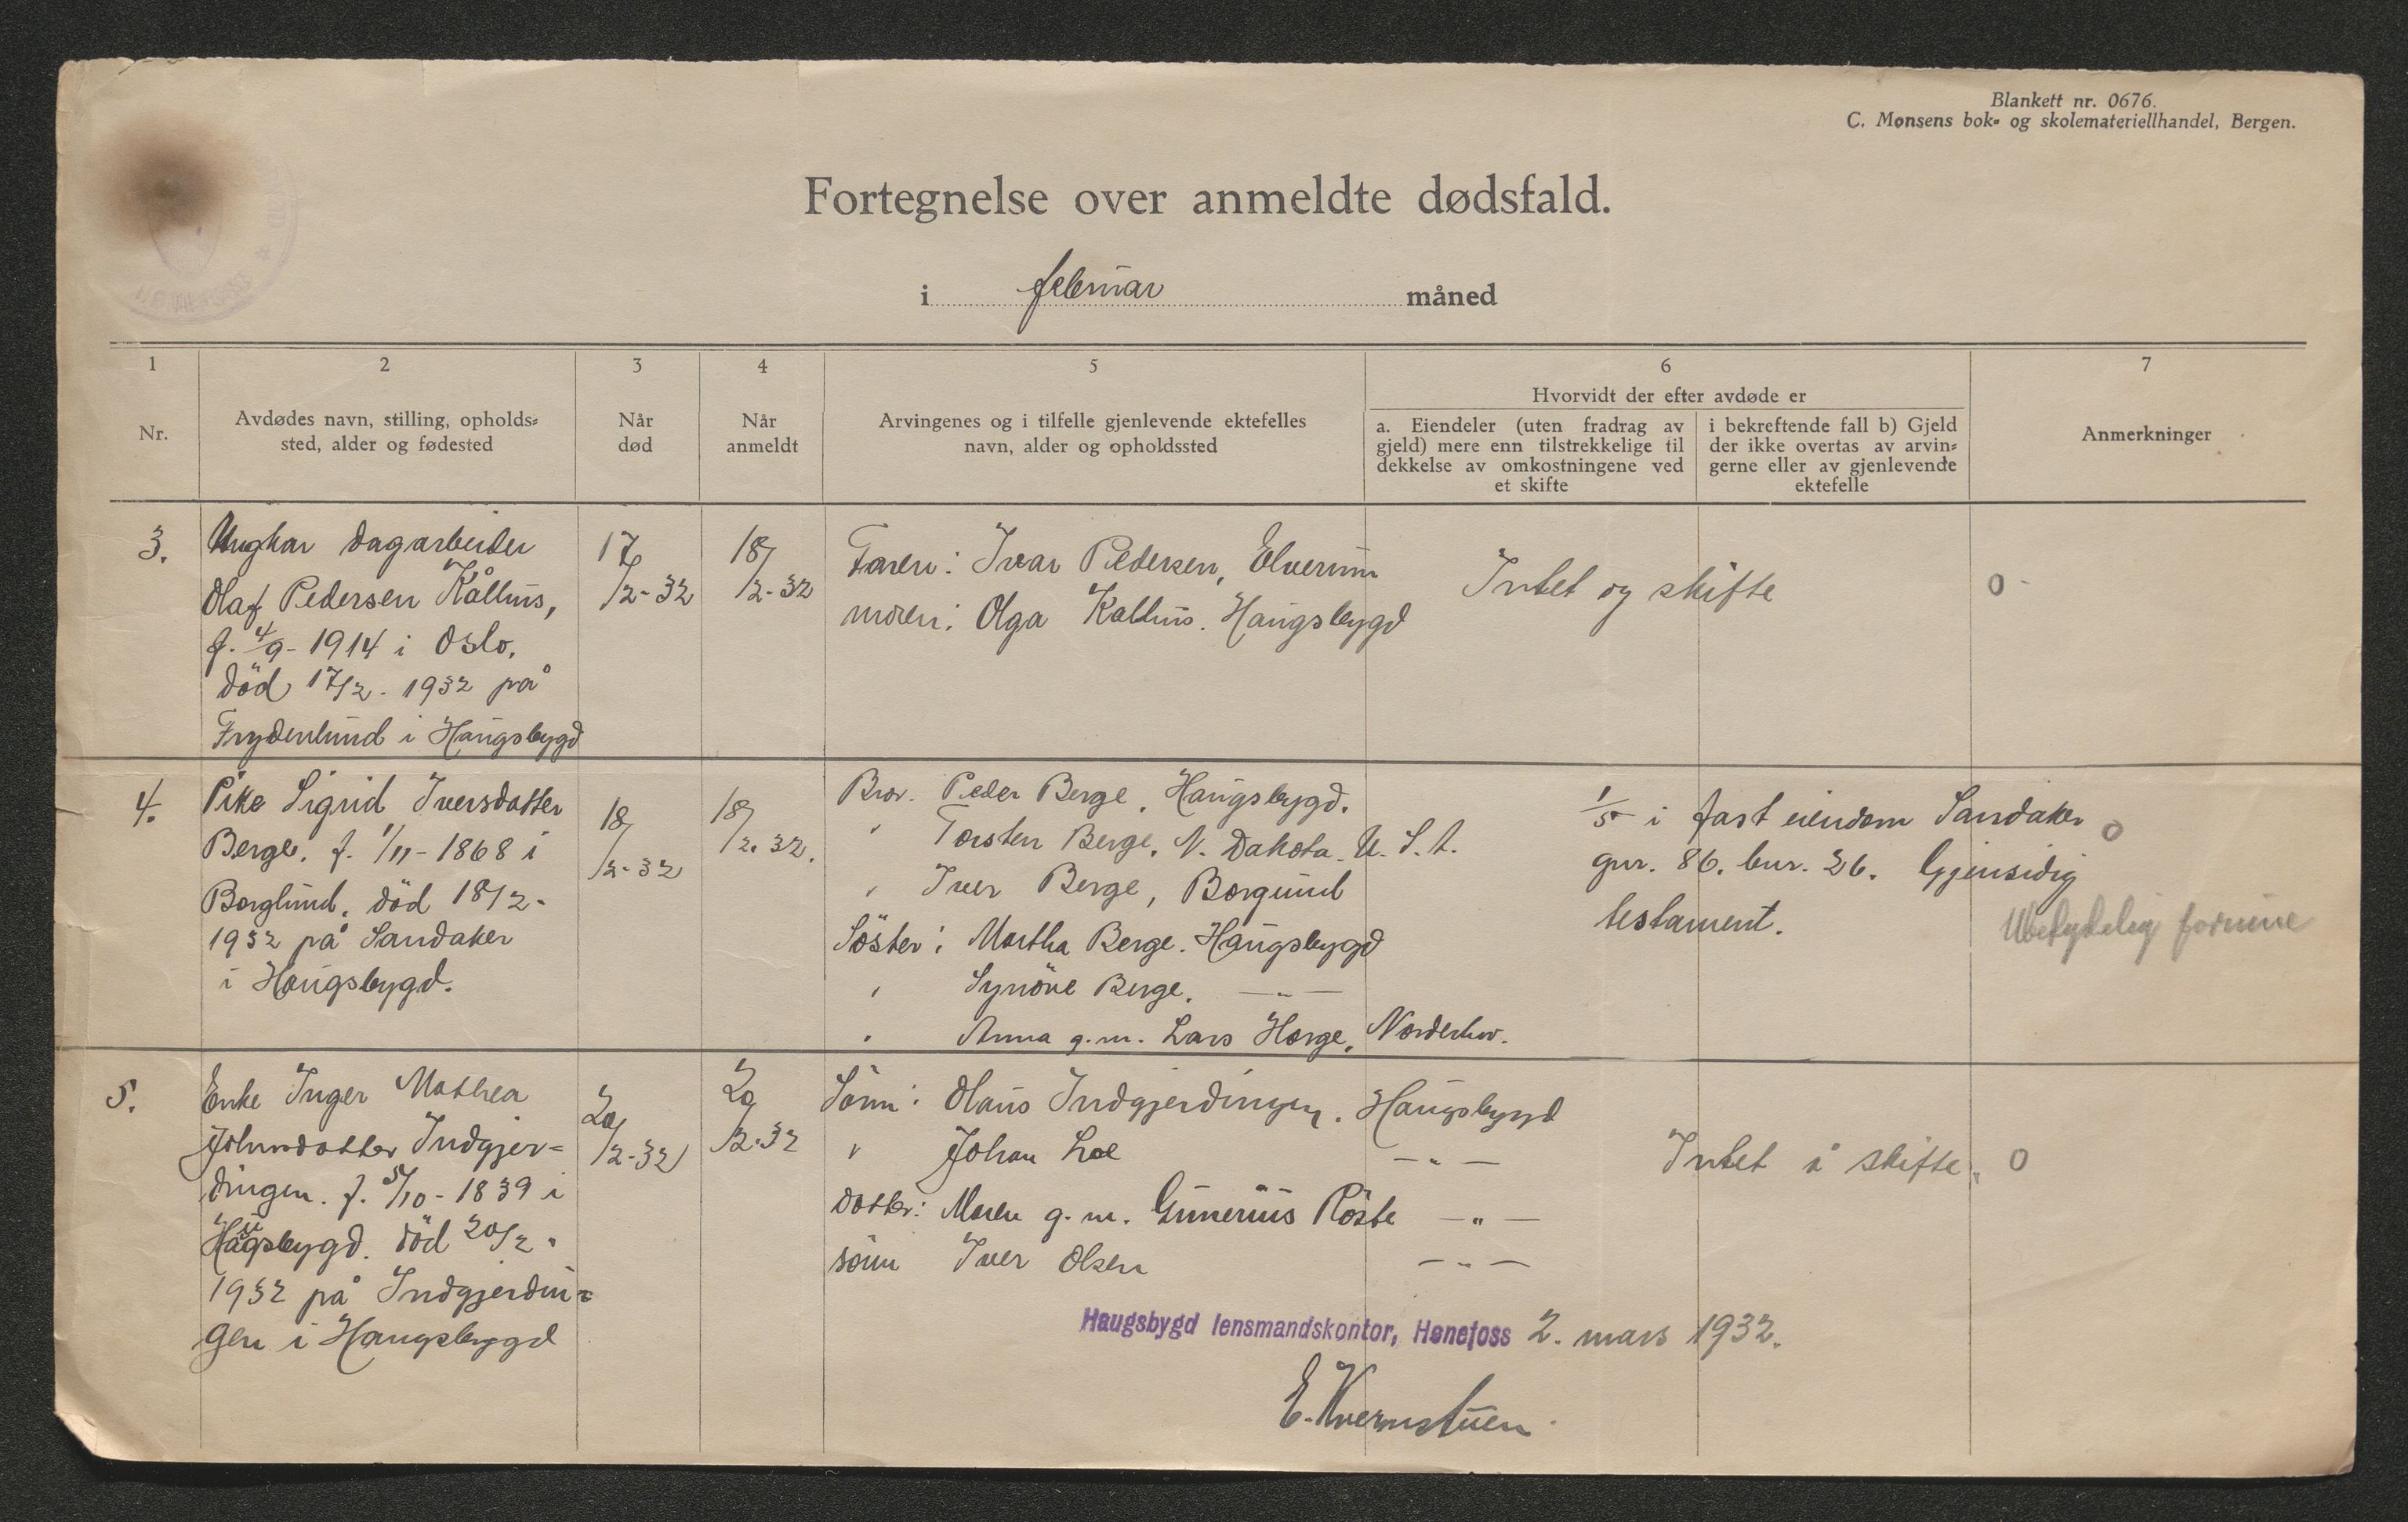 Blankett nr. 0676.
C. Monsens bok- og skolemateriellhandel, Bergen.
Fortegnelse over anmeldte dødsfald.
i februar måned
1 2 3 4 5 6 7
Nr.
Avdødes navn, stilling, opholds-
sted, alder og fødested
Når
død
Når
anmeldt
Arvingenes og i tilfelle gjenlevende ektefelles
navn, alder og opholdssted
Hvorvidt der efter avdøde er
a. Eiendeler (uten fradrag av
gjeld) mere enn tilstrekkelige til
dekkelse av omkostningene ved
et skifte
i bekreftende fall b) Gjeld
der ikke overtas av arvin-
gerne eller av gjenlevende
ektefelle
Anmerkninger
3.
Ungkar dagarbeider
Olaf Pedersen Kålhus,
f. 4/9- 1914 i Oslo,
död 17/2- 1932 på
Frydenlund i Haugsbygd
17/2-32
18/2-32
Faren: Ivar Pedersen, Elverum
moren: Olga Kalhus. Haugsbygd
Intet og skifte
0 -
4.
Pike Sigrid Iversdatter
Berge. f. 1/11-1868 i
Borglund. död 18/2-
1932 på Sandaker
i Haugsbygd.
18/2-32
18/2. 32.
Bror. Peder Berge, Haugsbygd.
" Torsten Berge, N. Dakota. U. S. A.
" Iver Berge, Borgund
Söster: Martha Berge. Haugsbygd
" Synöve Berge. — " —
" Anna g.m. Lars Horge, Norderhov.
1/5 i fast eiendom Sandaker
gnr. 86. bnr. 26. Gjensidig
testament.
0
Ubetydelig formue
5.
Enke Inger Mathea
Johnsdatter Indgjer=
dingen. f. 5/10-1839 i
Haugsbygd. död 20/2-
1932 på Indgjerdin=
gen i Haugsbygd
20/2-32
20/2-32
Sönn: Olaus Indgjerdingen. Haugsbygd
" Johan Loe — " —
Datter: Maren g. m. Gunerius Röste — " —
sönn Iver Olsen — " —
Intet å skifte.
0
Haugsbygd lensmandskontor, Hønefoss 2. mars 1932.
E. Kvernstuen